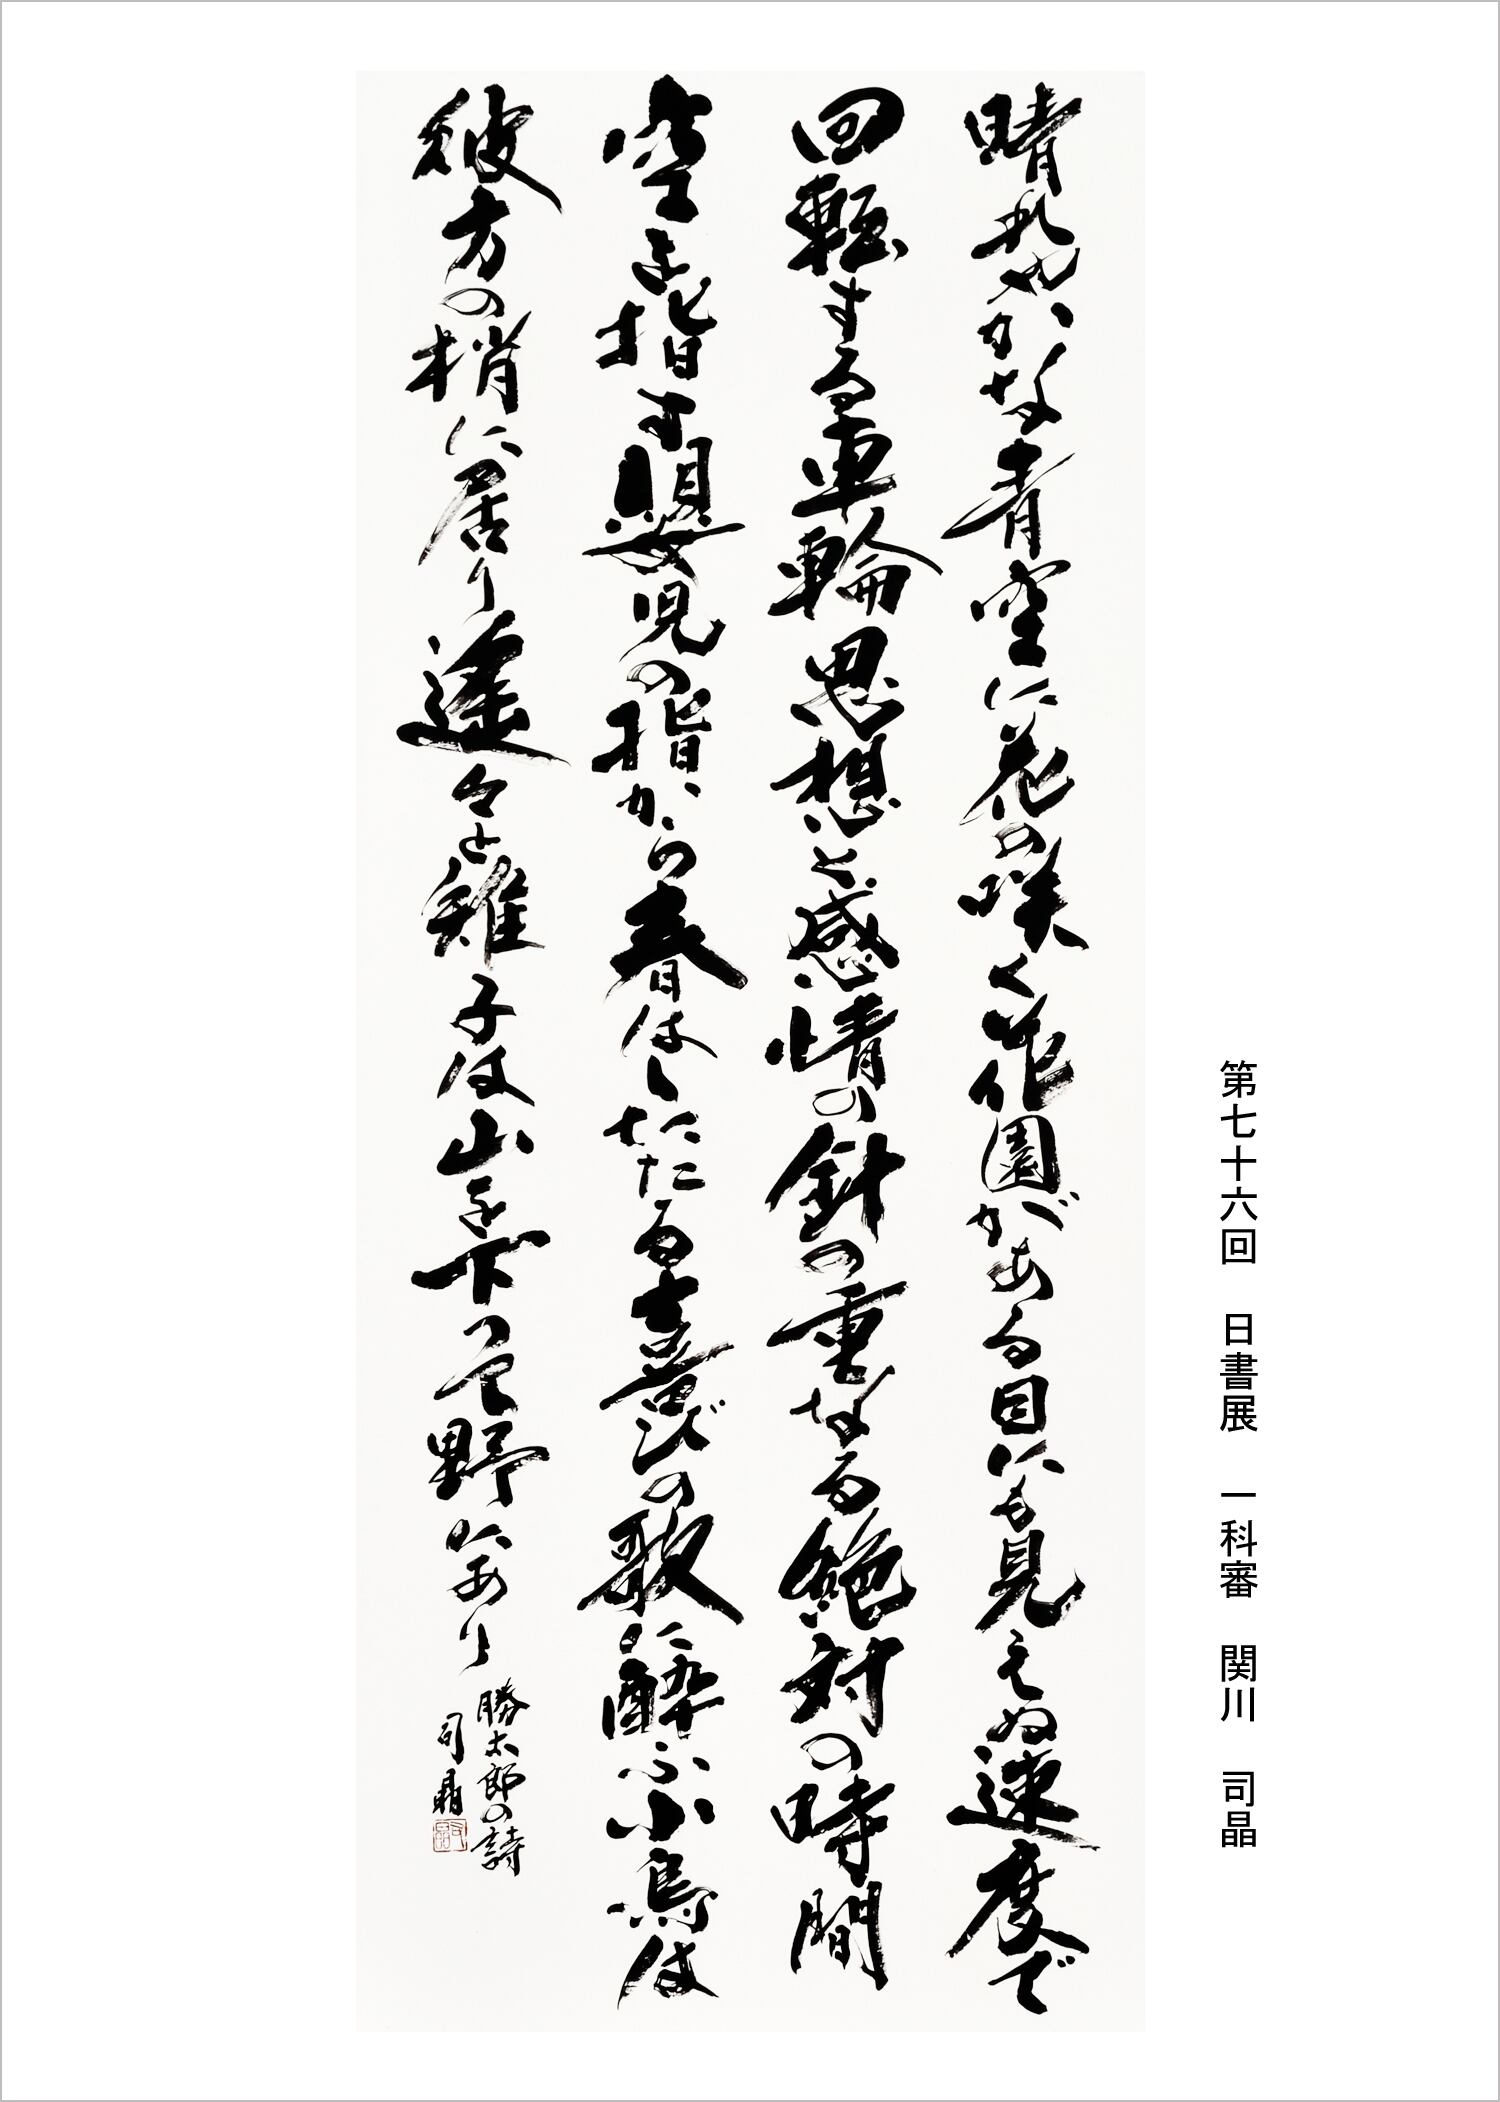 第七十六回 日書展 一科審 関川 司晶
晴れやかな青空に花の咲く作園がある目にも見えぬ速度で
回転する車輪思想と感情の針の重なる絶対の時間
空を指す嬰児の指から春はしたたる喜びの歌に酔ふ小鳥は
彼方の梢に居り遠々と雉子は山を下って野にあり
勝太郎の詩
司晶